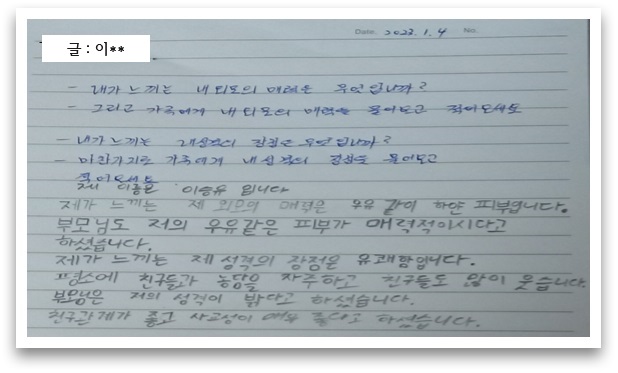 Date. 2023. 1. 4 No.
글 : 이**
- 내가 느끼는 내 외모의 매력은 무엇입니까?
- 그리고 가족에게 내 외모의 매력을 물어보고 적어오세요
- 내가 느끼는 내성격의 장점은 무엇입니까?
- 마찬가지로 가족에게 내 성격의 장점을 물어보고
적어오세요
제 이름은 이승유 입니다
제가 느끼는 제 외모의 매력은 우유 같이 하얀 피부입니다.
부모님도 저의 우유같은 피부가 매력적이시다고
하셨습니다.
제가 느끼는 제 성격의 장점은 유쾌함입니다.
평소에 친구들과 농담을 자주하고 친구들도 많이 웃습니다.
부모님은 저의 성격이 밝다고 하셨습니다.
친구관계가 좋고 사교성이 매우 좋다고 하셨습니다.